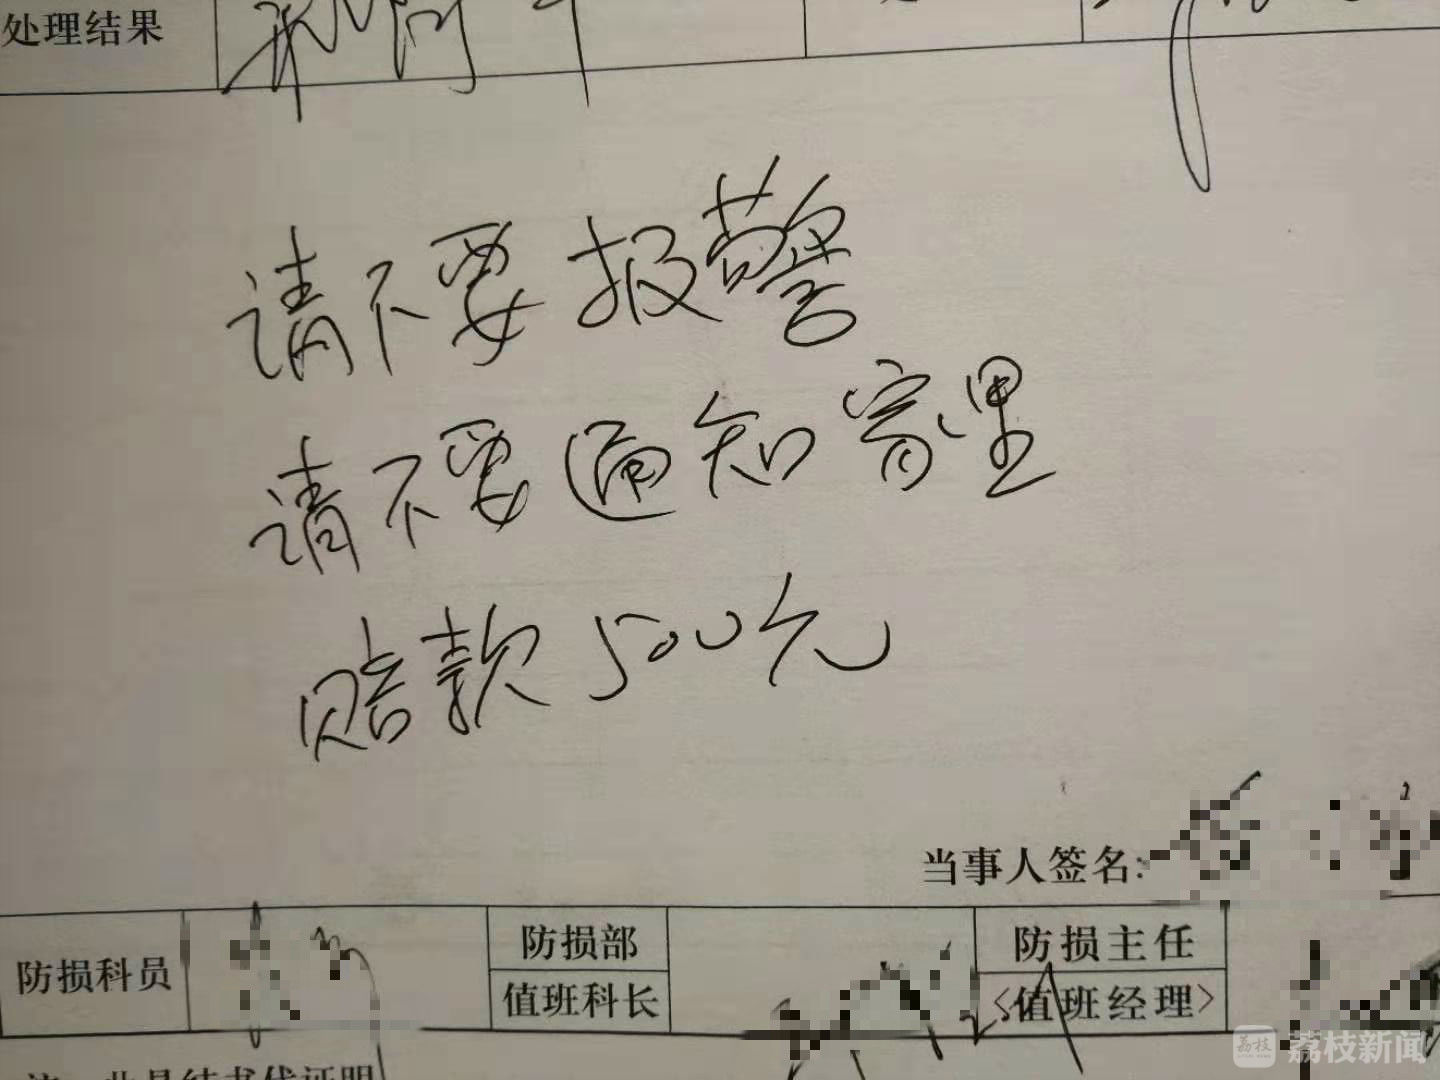 处理结果
请不要报警
请不要通知家里
赔款500元
当事人签名:
防损科员
防损部
值班科长
防损主任
<值班经理>
荔枝
荔枝新闻